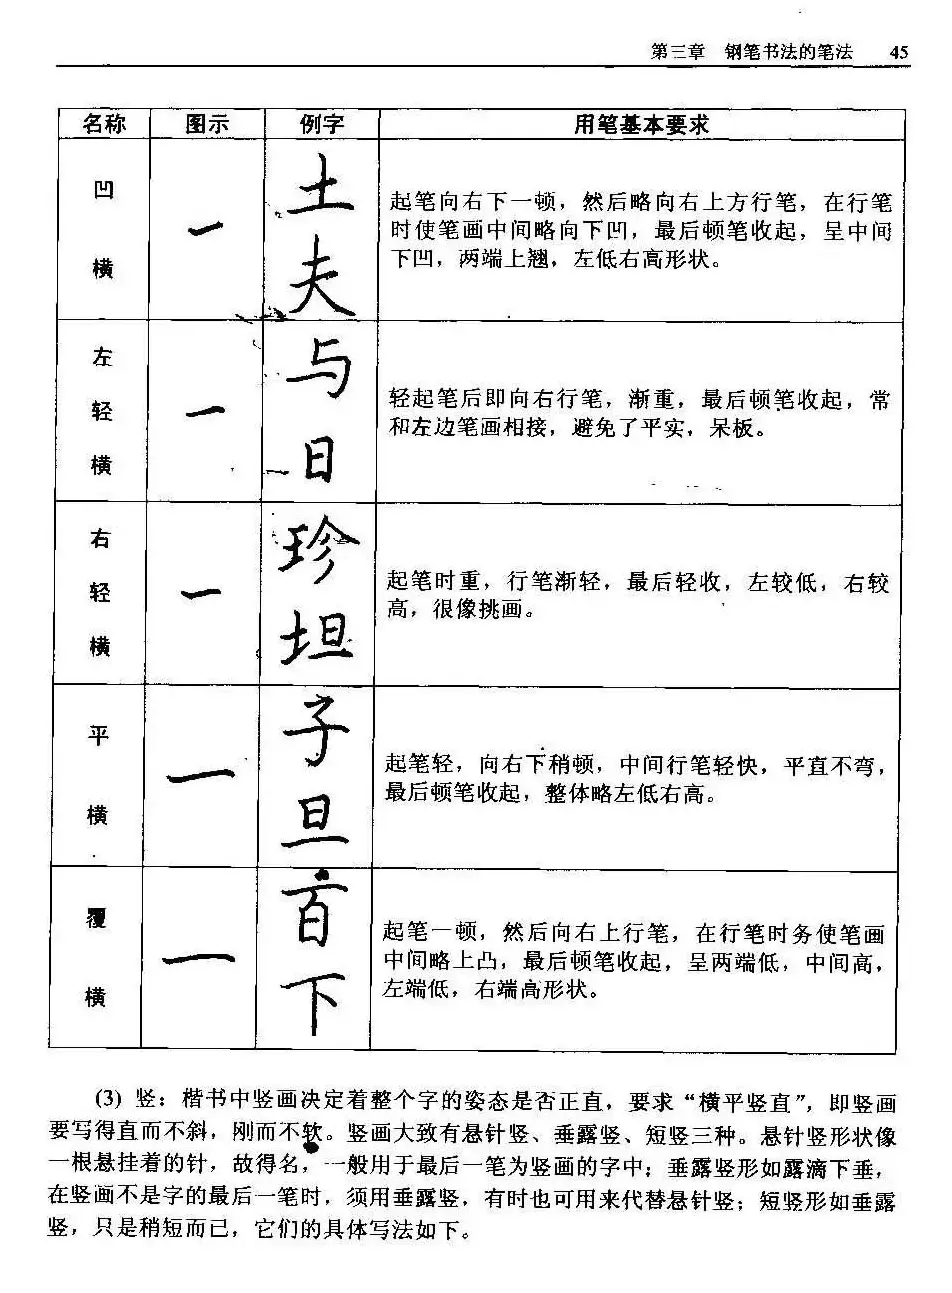 第三章 钢笔书法的笔法 45
名称 图示 例字 用笔基本要求
凹横
土
夫
起笔向右下一顿，然后略向右上方行笔，在行笔
时使笔画中间略向下凹，最后顿笔收起，呈中间
下凹，两端上翘，左低右高形状。
左轻横
与
日
轻起笔后即向右行笔，渐重，最后顿笔收起，常
和左边笔画相接，避免了平实，呆板。
右轻横
珍
坦
起笔时重，行笔渐轻，最后轻收，左较低，右较
高，很像挑画。
平横
子
旦
起笔轻，向右下稍顿，中间行笔轻快，平直不弯，
最后顿笔收起，整体略左低右高。
覆横
百
下
起笔一顿，然后向右上行笔，在行笔时务使笔画
中间略上凸，最后顿笔收起，呈两端低，中间高，
左端低，右端高形状。
(3) 竖：楷书中竖画决定着整个字的姿态是否正直，要求“横平竖直”，即竖画
要写得直而不斜，刚而不软。竖画大致有悬针竖、垂露竖、短竖三种。悬针竖形状像
一根悬挂着的针，故得名，一般用于最后一笔为竖画的字中；垂露竖形如露滴下垂，
在竖画不是字的最后一笔时，须用垂露竖，有时也可用来代替悬针竖；短竖形如垂露
竖，只是稍短而已，它们的具体写法如下。